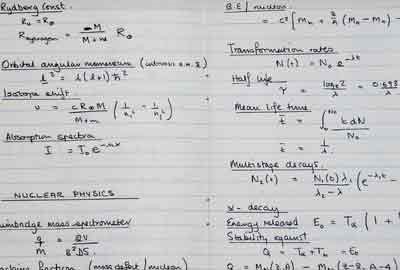 Rydberg Const.
R₀ = R∞
R_Hydrogen = M / M+m R∞
Orbital angular momentum
l² = l(l+1)ħ²
Isotope shift
υ = cR∞M / M+m (1/n₁² - 1/n₂²)
Absorption spectra
I = I₀e^-nαx
NUCLEAR PHYSICS
Bainbridge mass spectrometer
q/m = 2V / B²DS
(mass defect / nucleon)
B.E / nucleon
= c² [ Mₙ + z/A (M_H - Mₙ) -
Transformation rates
N(t) = N₀ e^-λt
Half life
τ = log_e 2 / λ = 0.693 / λ
Mean life time
t̄ = ∫₀^N₀ t dN / N₀
t̄ = 1/λ
Multistage decays.
N₂(t) = N₁(0) λ₁ / λ₂ - λ₁ (e^-λ₁t -
α - decay
Energy released E₀ = Tα (1 +
Stability against
Q = Tα + T_b = E₀
Q = M_N(Z,A) - M_N(Z-2, A-4)